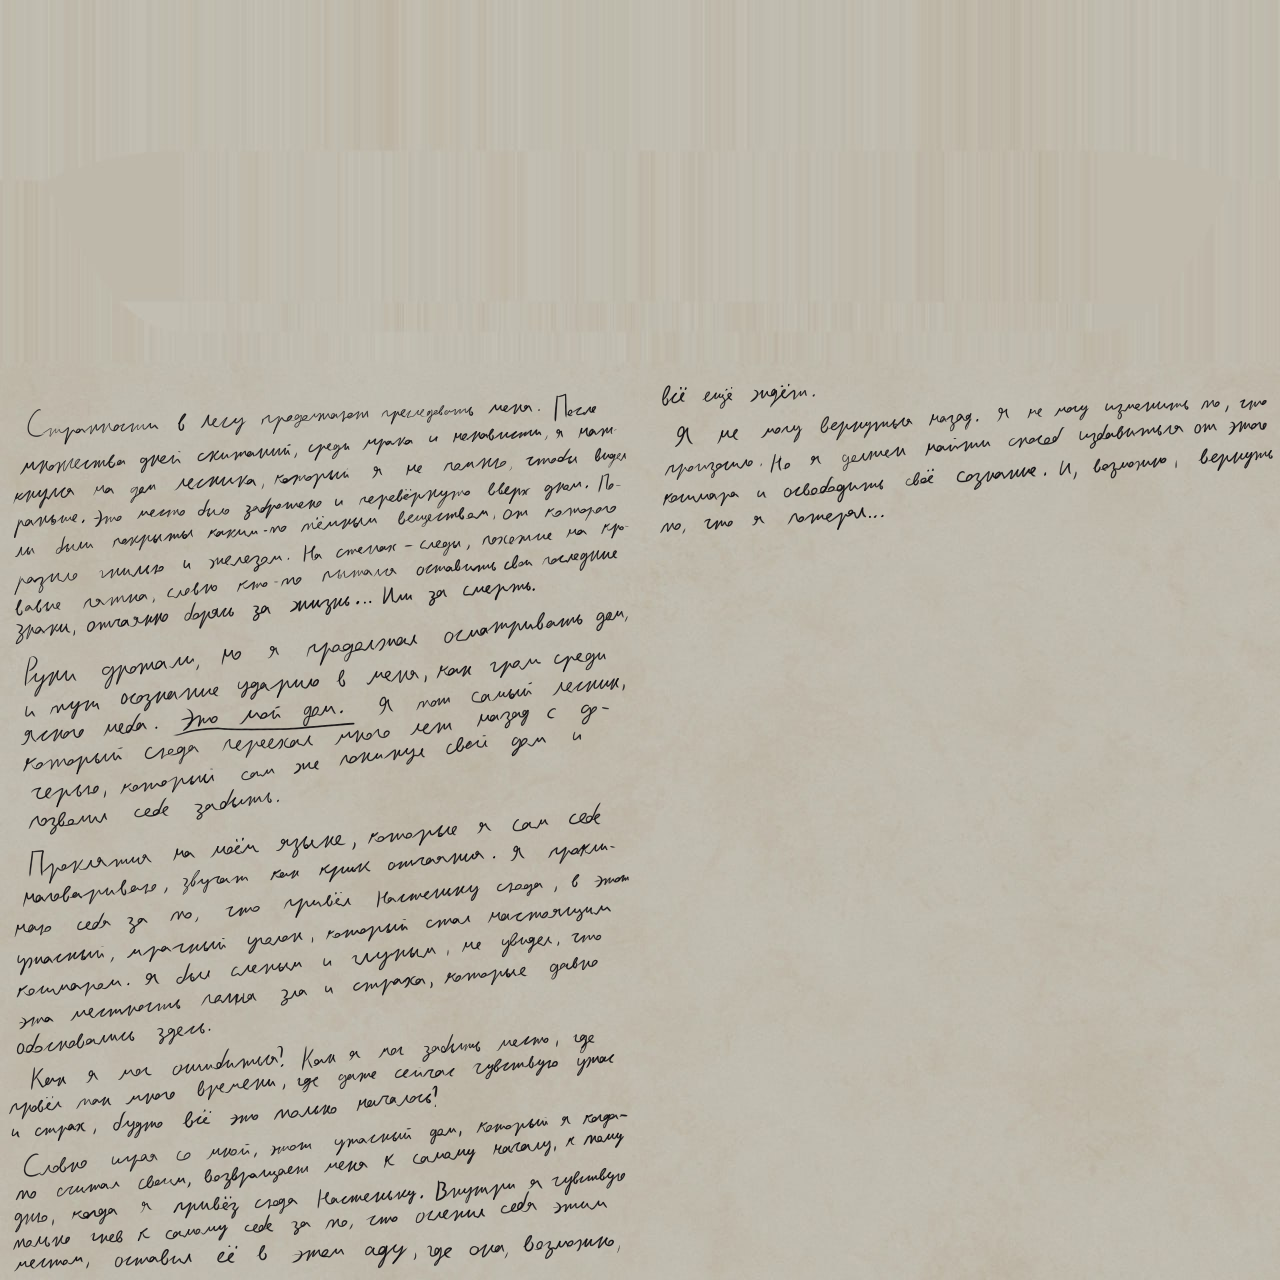 Странности в лесу продолжают преследовать меня. После
множества дней скитаний, среди мрака и ненависти, я нат-
кнулся на дом лесника, который я не помню, чтобы видел
раньше. Это место было заброшено и перевёрнуто вверх дном. По-
лы были покрыты каким-то тёмным веществом, от которого
разило гнилью и железом. На стенах - следы, похожие на кро-
вавые пятна, словно кто-то пытался оставить свои последние
знаки, отчаянно борясь за жизнь... Или за смерть.
Руки дрожали, но я продолжал осматривать дом,
и тут осознание ударило в меня, как гром среди
ясного неба. Это мой дом. Я тот самый лесник,
который сюда переехал много лет назад с до-
черью, который сам же покинул свой дом и
позволил себе забыть.
Проклятия на моём языке, которые я сам себе
наговариваю, звучат как крик отчаяния. Я прокли-
наю себя за то, что привёл Настеньку сюда, в этот
ужасный, мрачный уголок, который стал настоящим
кошмаром. Я был слепым и глупым, не увидел, что
эта местность полна зла и страха, которые давно
обосновались здесь.
Как я мог ошибиться? Как я мог забыть место, где
провёл так много времени, где даже сейчас чувствую ужас
и страх, будто всё это только началось?
Словно играя со мной, этот ужасный дом, который я когда-
то считал своим, возвращает меня к самому началу, к тому
дню, когда я привёз сюда Настеньку. Внутри я чувствую
только гнев к самому себе за то, что ослепил себя этим
местом, оставил её в этом аду, где она, возможно,
всё ещё ждёт.
Я не могу вернуться назад. Я не могу изменить то, что
произошло. Но я должен найти способ избавиться от этого
кошмара и освободить своё сознание. И, возможно, вернуть
то, что я потерял...